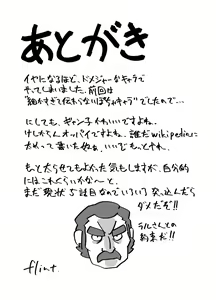 あとがき
イヤになるほど、ドメジャーなキャラで
そてしまいました。前回は
"細かすぎて伝わらないぽちゃキャラ"でしたので…
にしても、ギャン子かわいいですよね。
けしからんオッパイですよね。誰だwikipediaに
だめって書いた奴ぁ、いいぞもっとやれ。
もっと太らせてもよかった気もしますが、自分的
にはこれくらいかな〜と。
まだ現状5話目なのでいろいろ突っ込んだら
ダメだぞ!!
ラルさんとの
約束だ!!
flint.